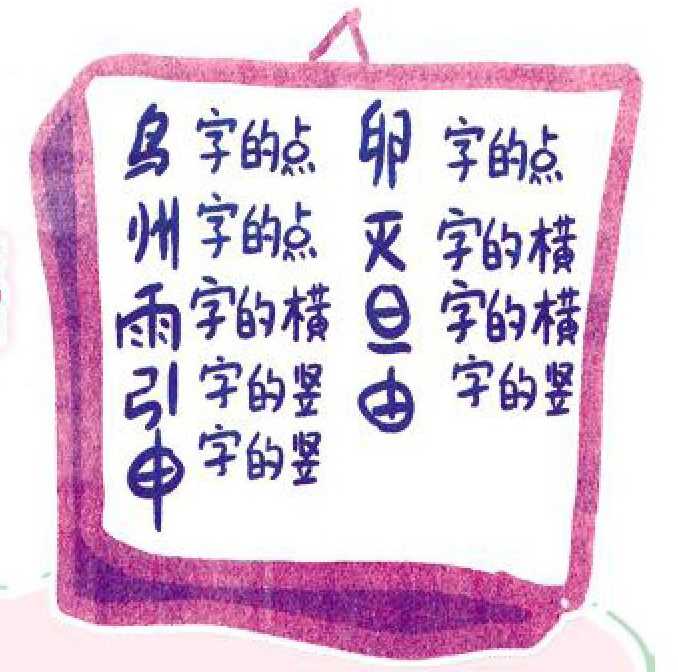 鸟字的点 卵字的点
州字的点 灭字的横
雨字的横 旦字的横
引字的竖 由字的竖
申字的竖